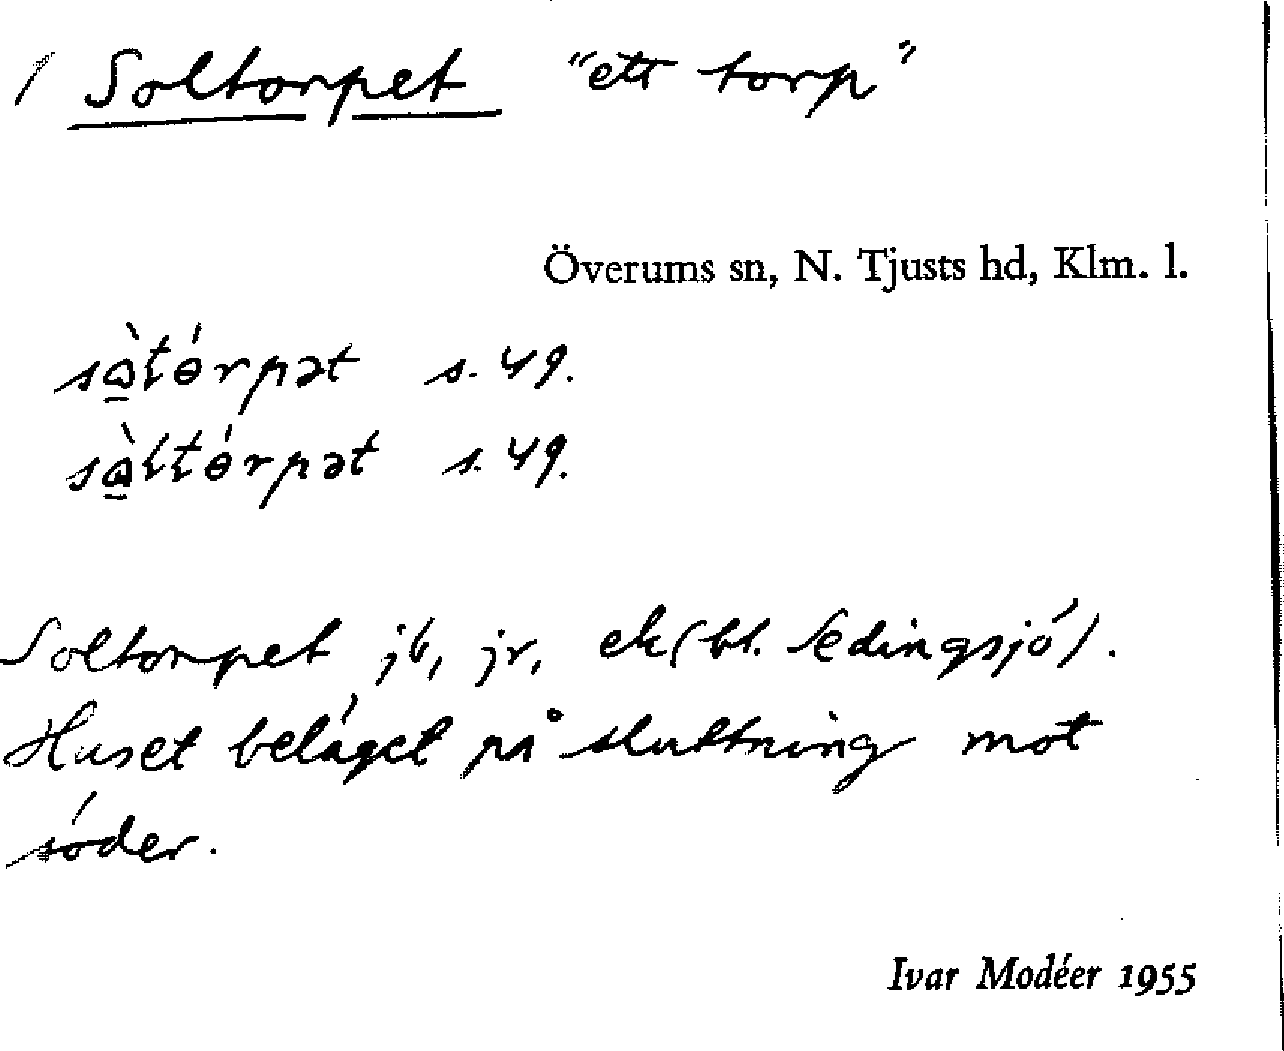 / Soltorpet "ett torp"
Överums sn, N. Tjusts hd, Klm. l.
sɷ̠̀tɵ́rpət s. 49.
sɷ̠̀ltɵ́rpət s. 49.
Soltorpet jb, jr, ek (bl. Sedingsjö).
Huset beläget på sluttning mot
söder.
Ivar Modéer 1955